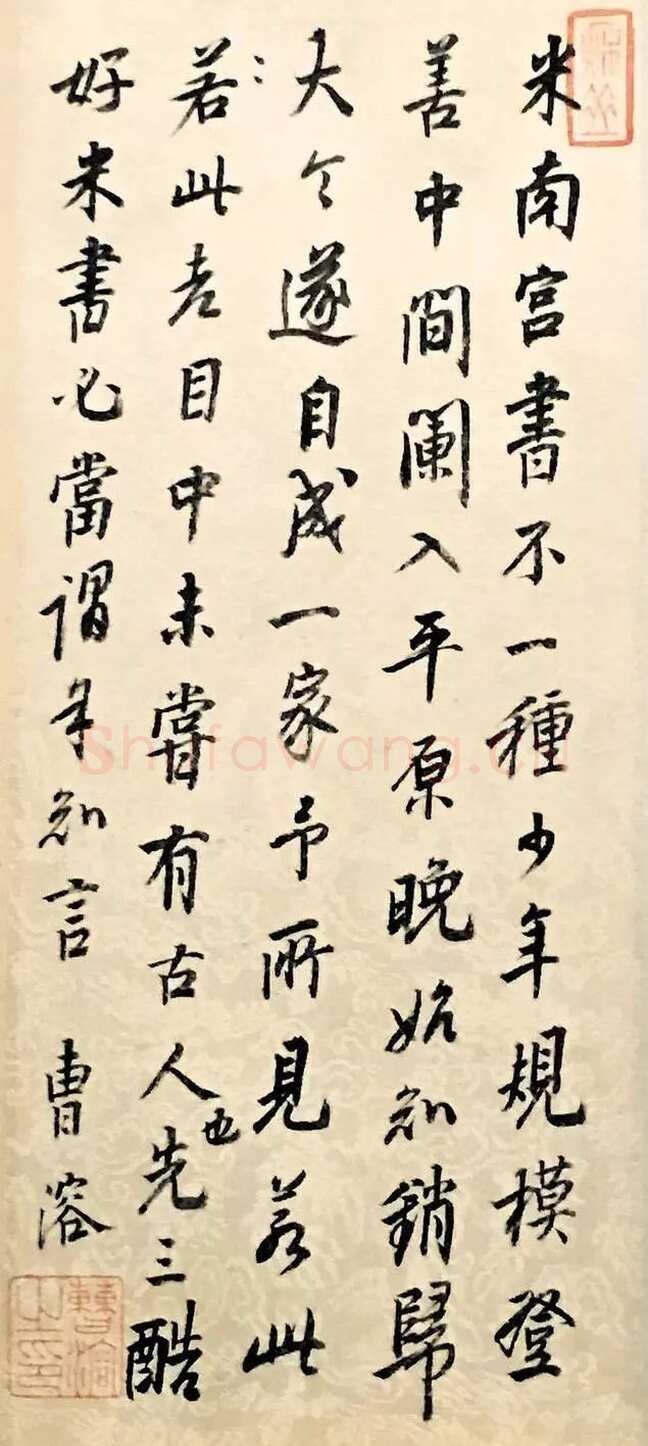 米南宫書不一種少年規模登
善中間闌入平原晚始知銷歸
大令遂自成一家予所見若此
若此老目中未嘗有古人也先生酷
好米書必當謂知言 曹溶
曹溶之印
Shufawang.cn